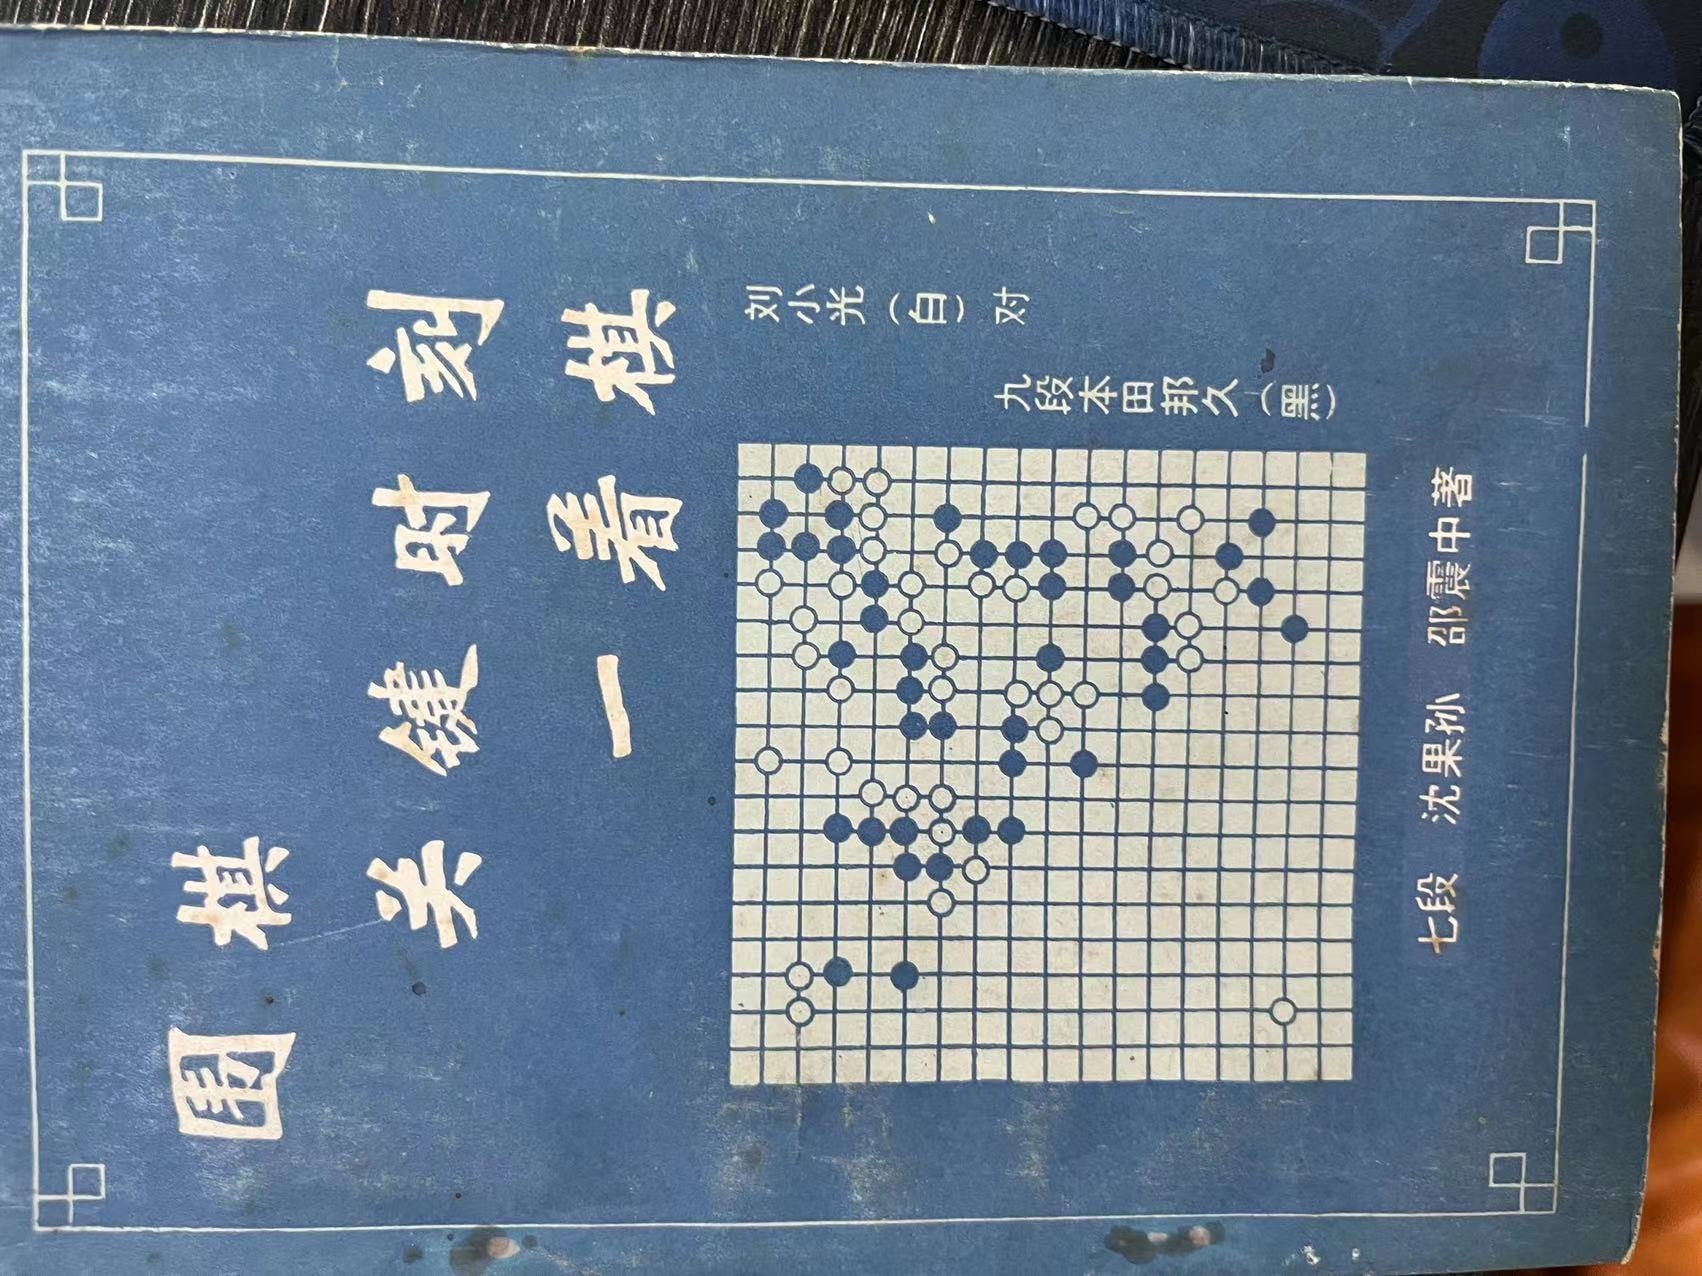 围棋
关键时刻
一着棋
刘小光（白）对
九段本田邦久（黑）
七段 沈果孙 邵震中著